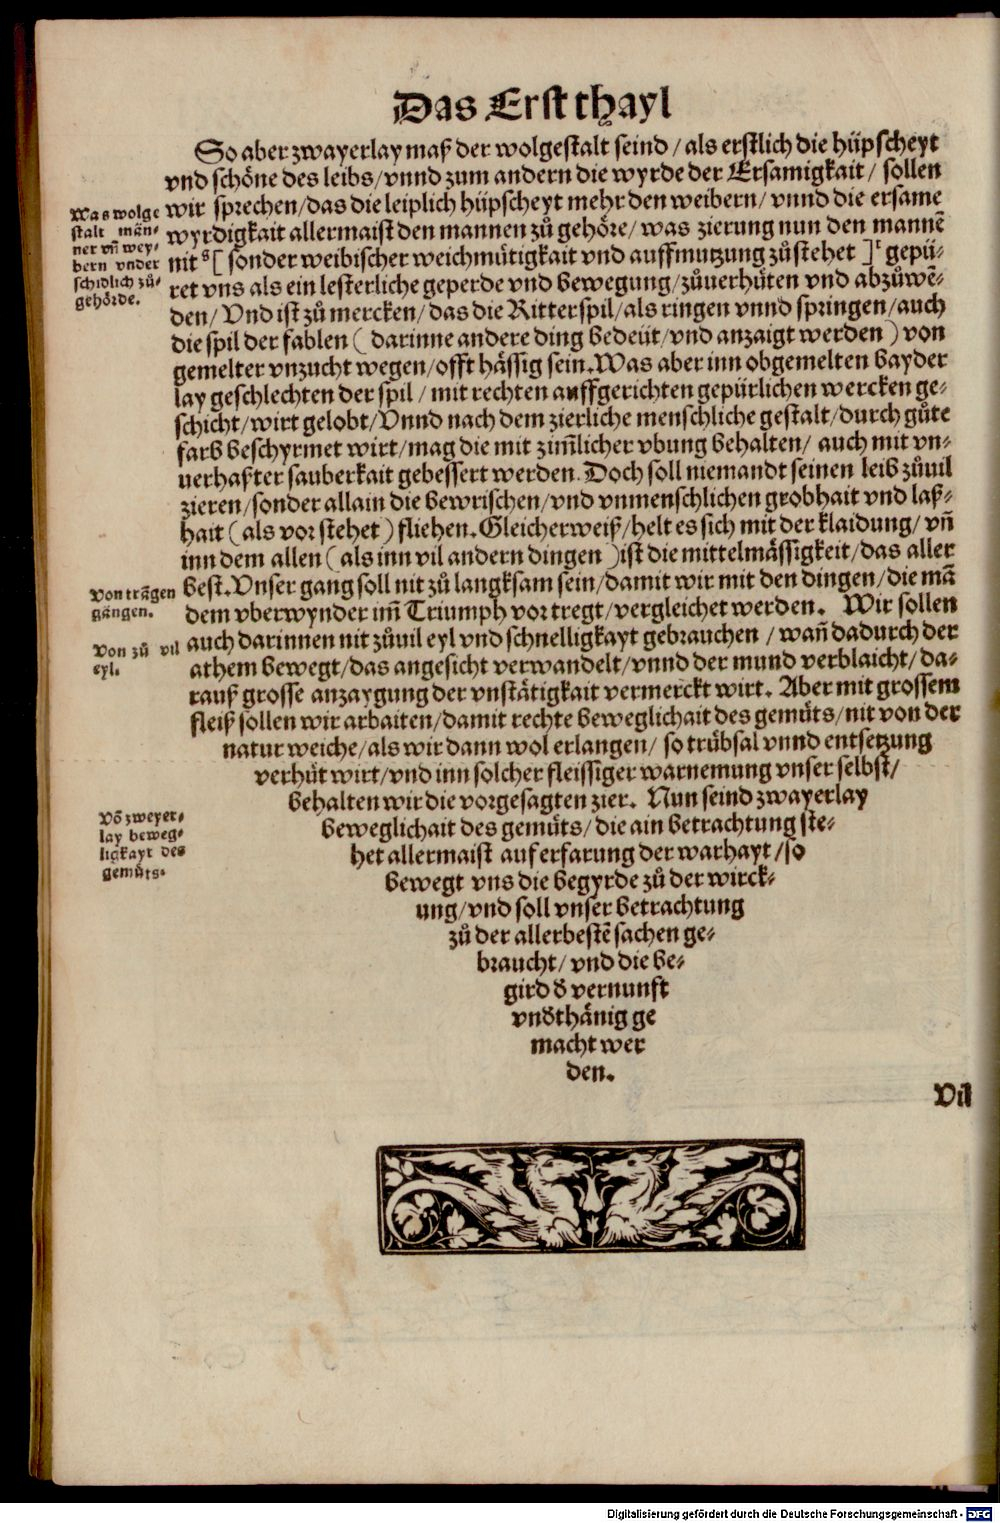 Das Erst thayl
So aber zwayerlay maß der wolgestalt seind / als erstlich die hüpscheyt
vnd schöne des leibs / vnnd zum andern die wyrde der Ersamigkait / sollen
wir sprechen / das die leiplich hüpscheyt mehr den weibern / vnnd die ersame
wyrdigkait allermaist den mannen zů gehöre / was zierung nun den mannē
nit ˢ[ sonder weibischer weichmütigkait vnd auffmutzung zůstehet ]ᵗ gepü⸗
ret vns als ein lesterliche geperde vnd bewegung / zůuerhüten vnd abzůwē⸗
den / Vnd ist zů mercken / das die Ritterspil / als ringen vnnd springen / auch
die spil der fablen ( darinne andere ding bedeüt / vnd anzaigt werden ) von
gemelter vnzucht wegen / offt hässig sein. Was aber inn obgemelten bayder
lay geschlechten der spil / mit rechten auffgerichten gepürlichen wercken ge⸗
schicht / wirt gelobt / Vnnd nach dem zierliche menschliche gestalt / durch gůte
farb beschyrmet wirt / mag die mit zim̃licher vbung behalten / auch mit vn⸗
uerhaßter sauberkait gebessert werden. Doch soll niemandt seinen leib zůuil
zieren / sonder allain die bewrischen / vnd vnmenschlichen grobhait vnd laß⸗
hait ( als vor stehet ) fliehen. Gleicherweiß / helt es sich mit der klaidung / vñ
inn dem allen ( als inn vil andern dingen ) ist die mittelmässigkeit / das aller
best. Vnser gang soll nit zů langksam sein / damit wir mit den dingen / die mā
dem vberwynder im̃ Triumph vor tregt / vergleichet werden. Wir sollen
auch darinnen nit zůuil eyl vnd schnelligkayt gebrauchen / wañ dadurch der
athem bewegt / das angesicht verwandelt / vnnd der mund verblaicht / da⸗
rauß grosse anzaygung der vnstätigkait vermerckt wirt. Aber mit grossem
fleiß sollen wir arbaiten / damit rechte beweglichait des gemüts / nit von der
natur weiche / als wir dann wol erlangen / so trübsal vnnd entsetzung
verhüt wirt / vnd inn solcher fleissiger warnemung vnser selbst /
behalten wir die vorgesagten zier. Nun seind zwayerlay
beweglichait des gemüts / die ain betrachtung ste⸗
het allermaist auf erfarung der warhayt / so
bewegt vns die begyrde zů der wirck⸗
ung / vnd soll vnser betrachtung
zů der allerbestē sachen ge⸗
braucht / vnd die be⸗
gird d̕ vernunft
vnd̕thänig ge
macht wer
den.
Vil
Was wolge
stalt män⸗
ner vñ wey⸗
bern vnder
schidlich zů⸗
gehörde.
Von trägen
gängen.
Von zů vil
eyl.
Vō zweyer⸗
lay beweg⸗
ligkayt des
gemüts.
Digitalisierung gefördert durch die Deutsche Forschungsgemeinschaft - DFG